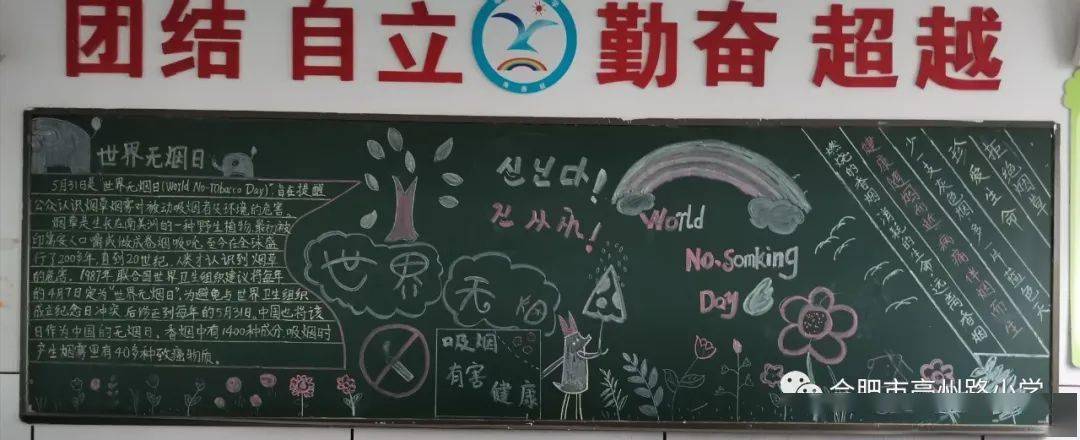 团结 自立 勤奋 超越
世界无烟日
5月31日是"世界无烟日(World No-Tobacco Day)"旨在提醒
公众认识烟草烟雾叶被动吸烟者及环境的危害。
烟草是生长在南美洲的一种野生植物,最初被
印第安人口嚼或做成卷烟吸吮,至今在全球盛
行了200多年,直到20世纪,人类才认识到烟草
的危害。1987年联合国世界卫生组织建议将每年
的4月7日定为"世界无烟日",为避免与世界卫生组织
成立纪念日冲突,后修正到每年的5月31日,中国也将该
日作为中国的无烟日。香烟中有1400种成分,吸烟时
产生烟雾里有40多种致癌物质。
世界
无烟
吸烟
有害
健康
신난다!
World
No.Somking
Day
拒绝烟草
珍爱生命
少一支灰色烟多一片蓝色天
健康随烟而逝病痛伴烟而生
燃烧的香烟 消耗的生命 远离香烟
合肥市亳州路小学